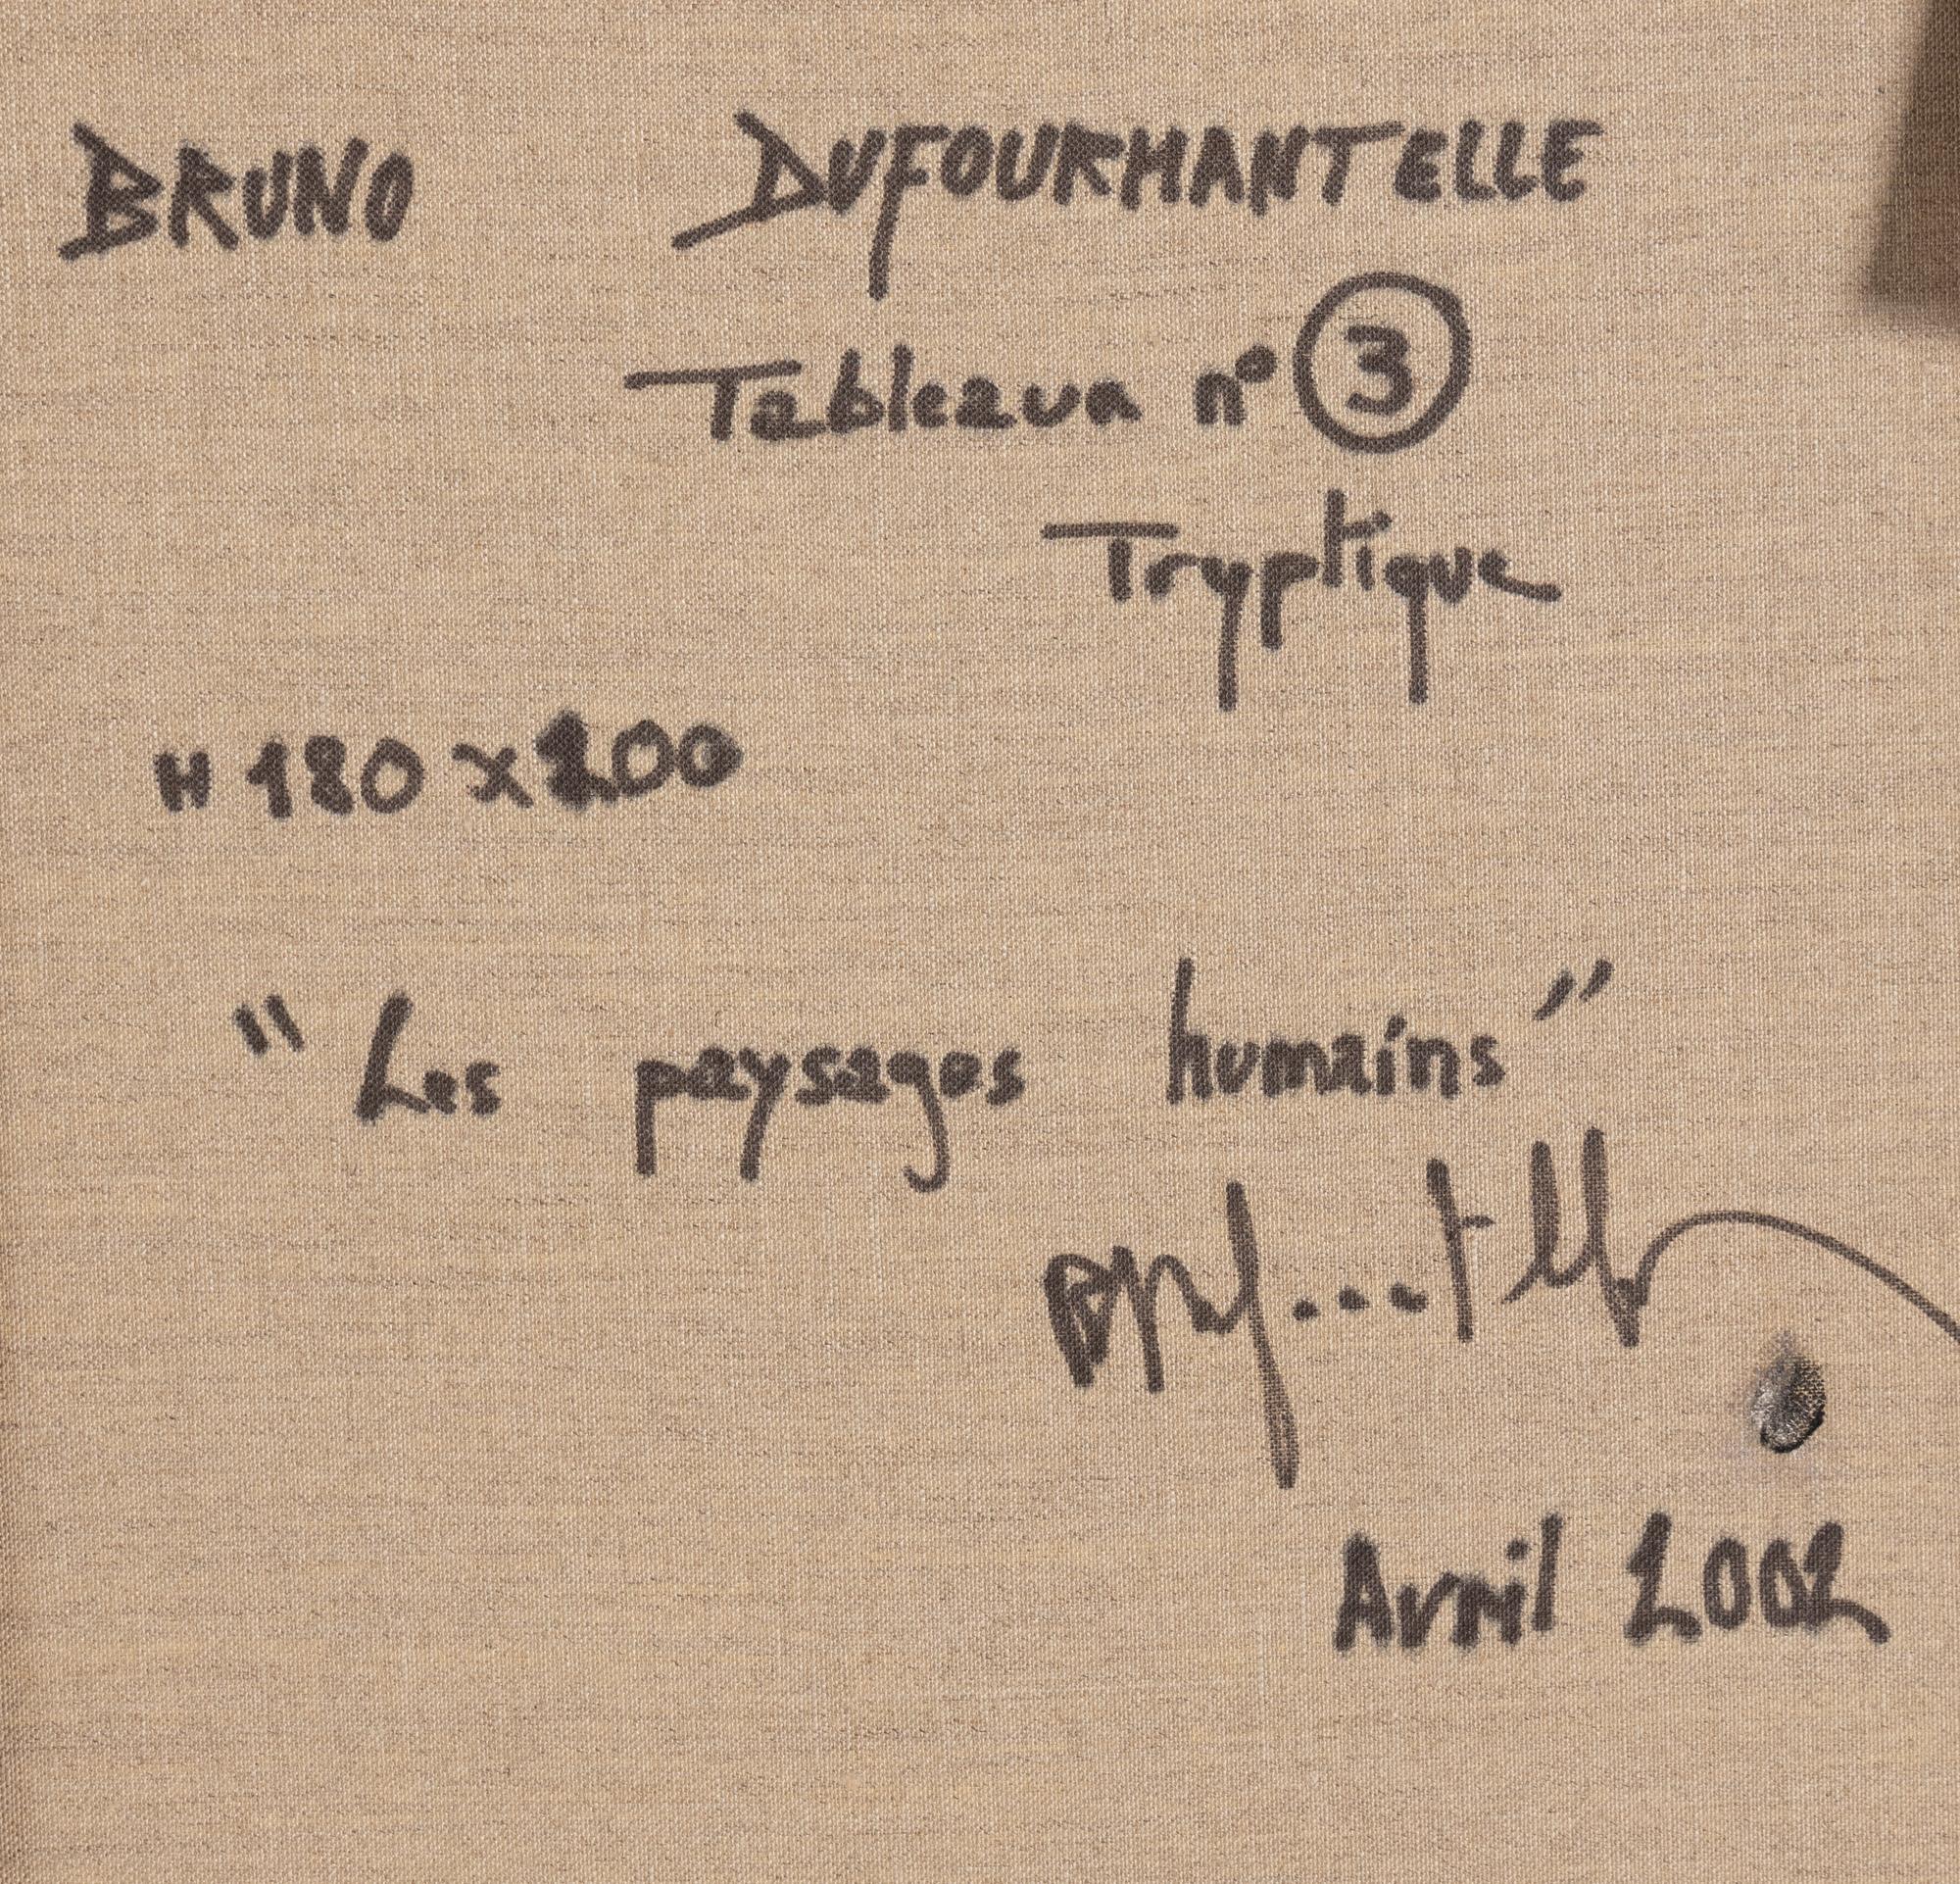 BRUNO DUFOURMANTELLE
Tableau n° 3
Tryptique
H 180 x 200
"Les paysages humains"
Avril 2002